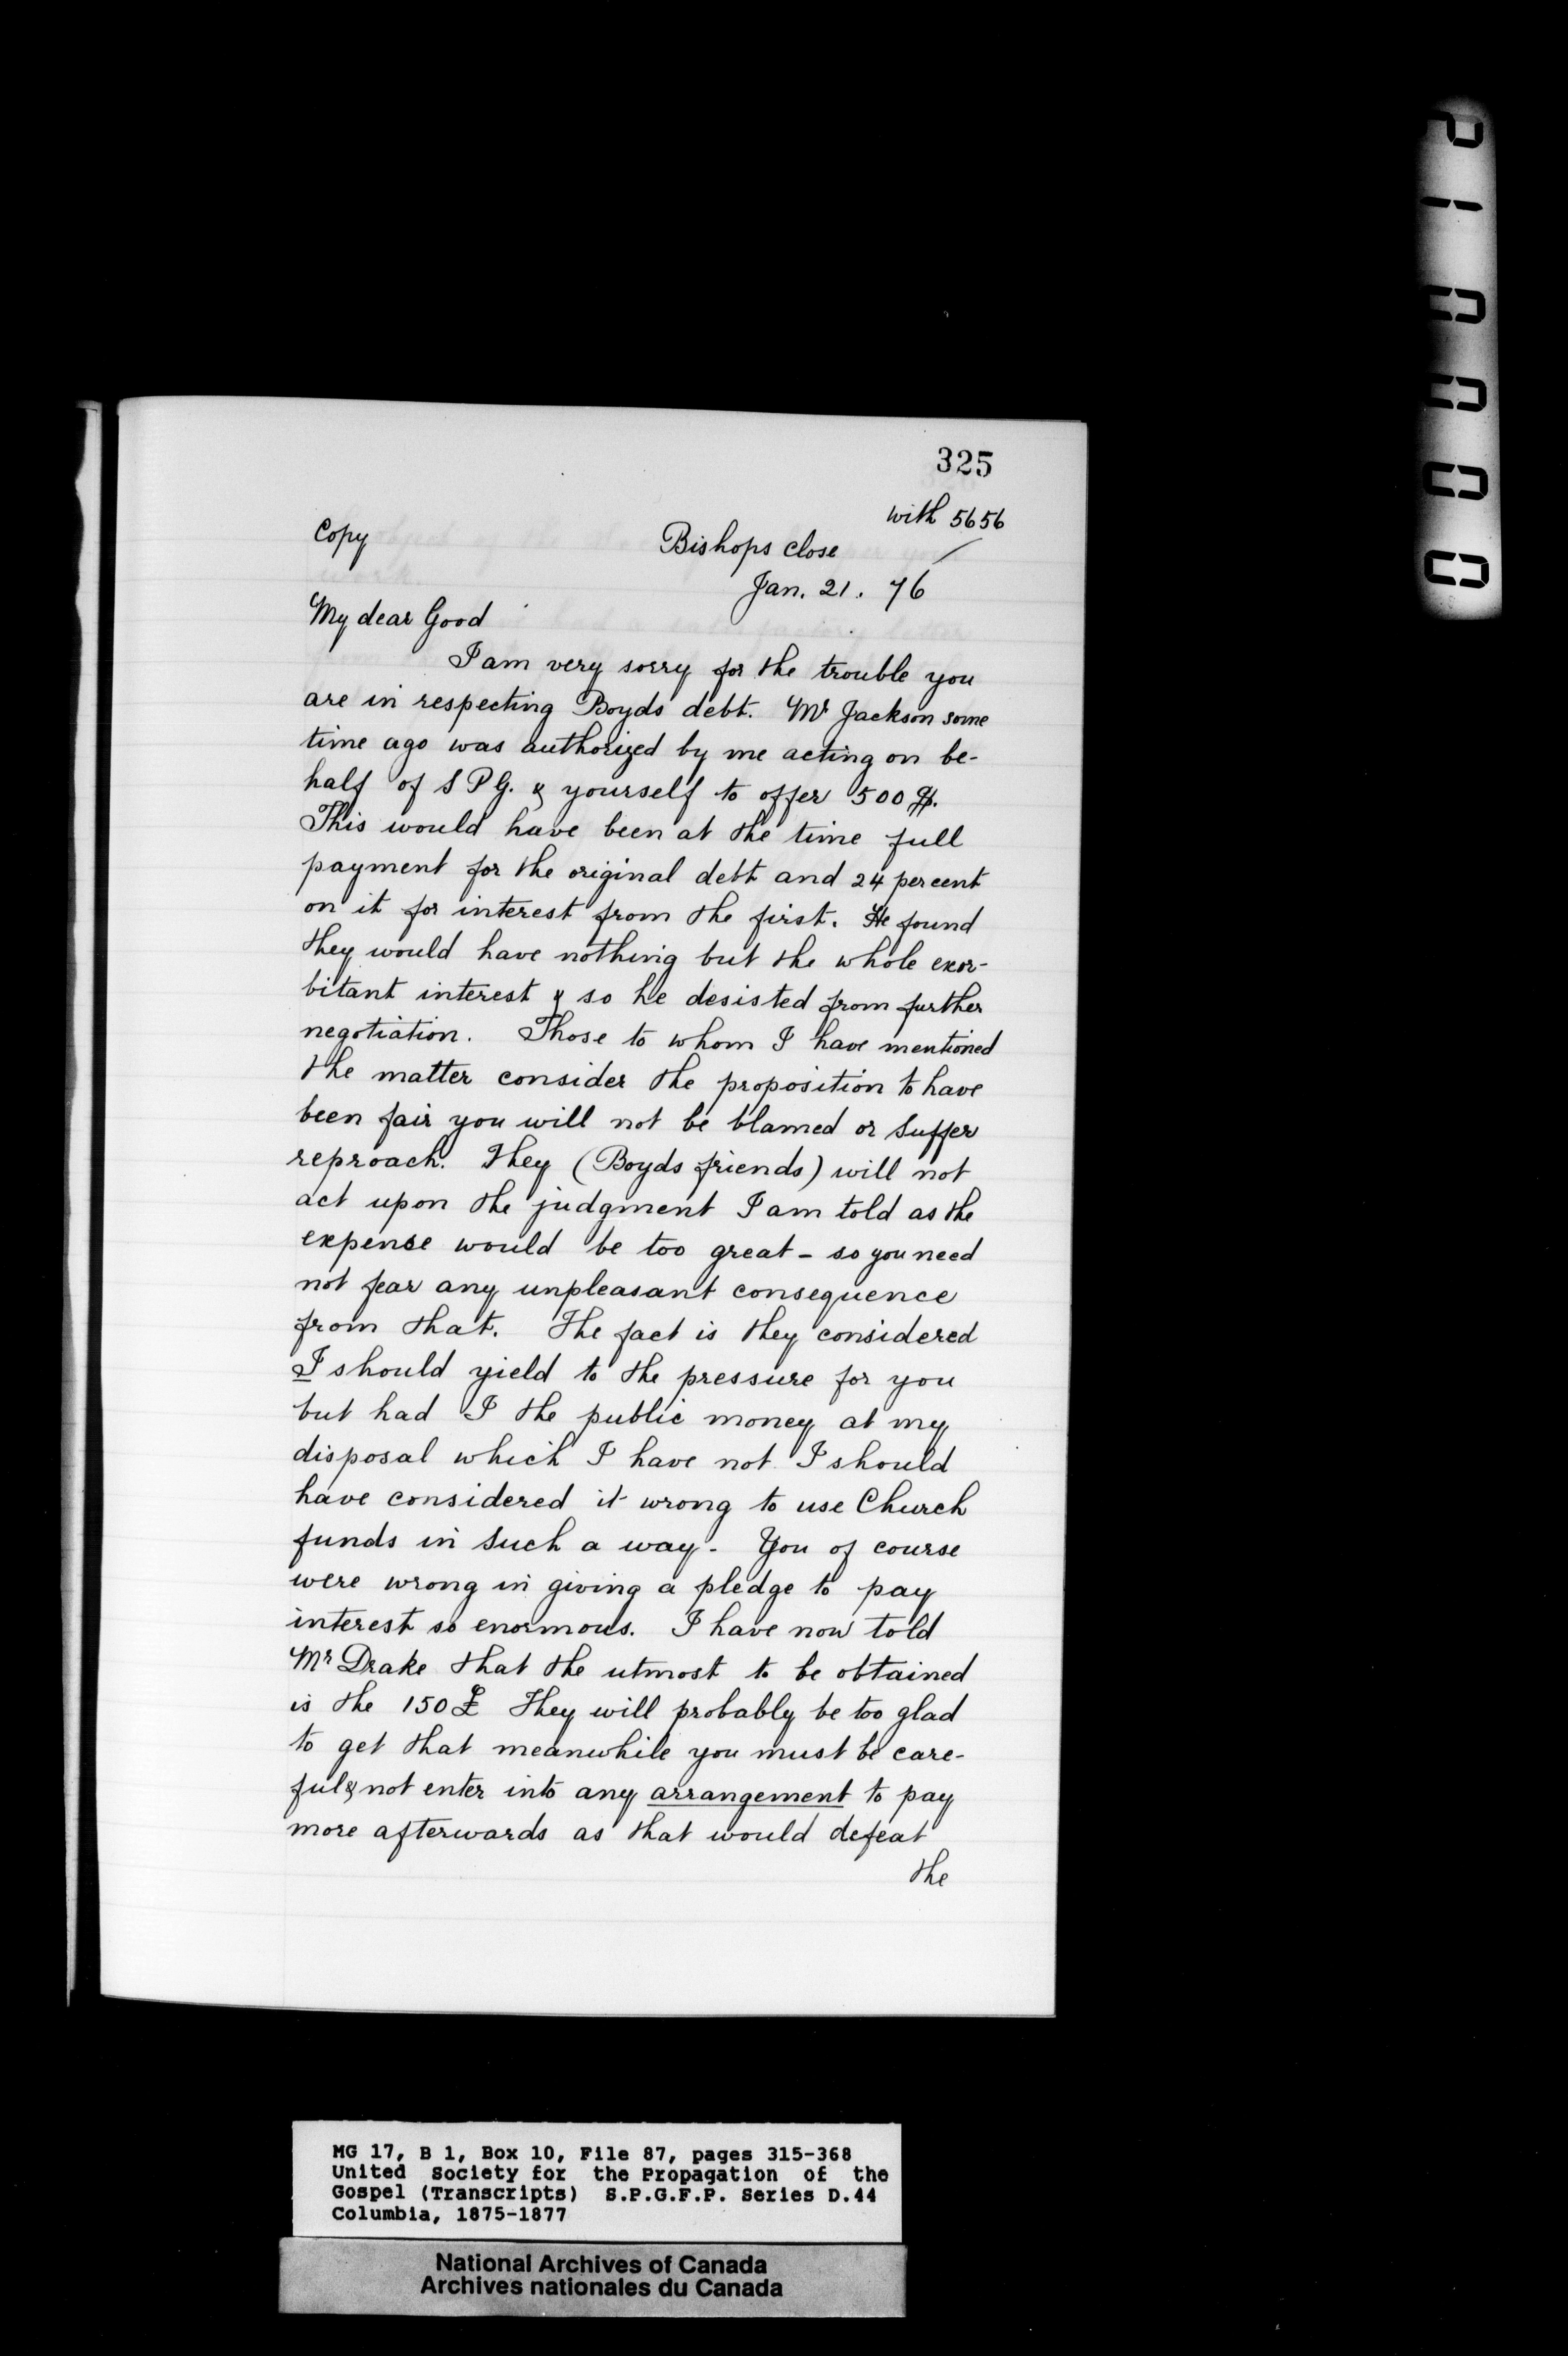 325
with 5656
Copy
Bishops close
Jan. 21. 76
My dear Good
I am very sorry for the trouble you
are in respecting Boyds debt. Mr Jackson some
time ago was authorized by me acting on be-
half of S P G. & yourself to offer 500 $.
This would have been at the time full
payment for the original debt and 24 per cent
on it for interest from the first. He found
they would have nothing but the whole exor-
bitant interest & so he desisted from further
negotiation. Those to whom I have mentioned
the matter consider the proposition to have
been fair you will not be blamed or suffer
reproach. They (Boyds friends) will not
act upon the judgment I am told as the
expense would be too great - so you need
not fear any unpleasant consequence
from that. The fact is they considered
I should yield to the pressure for you
but had I the public money at my
disposal which I have not I should
have considered it wrong to use Church
funds in such a way. You of course
were wrong in giving a pledge to pay
interest so enormous. I have now told
Mr Drake that the utmost to be obtained
is the 150 £ They will probably be too glad
to get that meanwhile you must be care-
ful & not enter into any arrangement to pay
more afterwards as that would defeat
the
MG 17, B 1, Box 10, File 87, pages 315-368
United Society for the Propagation of the
Gospel (Transcripts) S.P.G.F.P. Series D.44
Columbia, 1875-1877
National Archives of Canada
Archives nationales du Canada